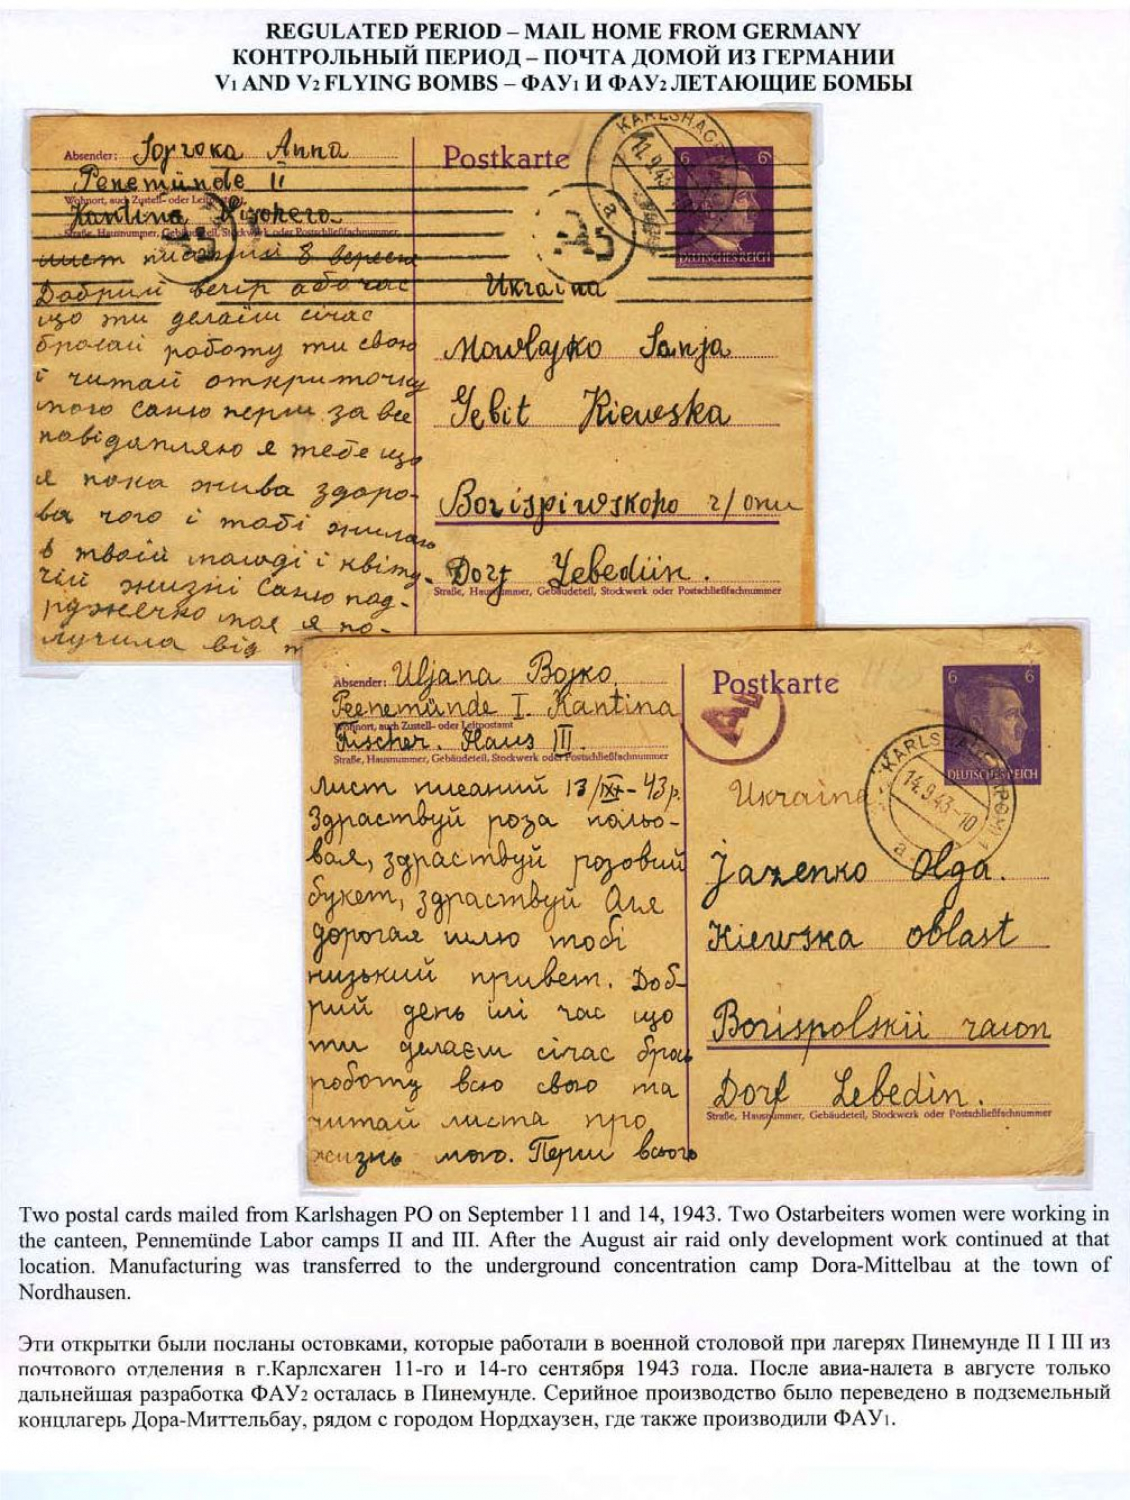 REGULATED PERIOD – MAIL HOME FROM GERMANY
КОНТРОЛЬНЫЙ ПЕРИОД – ПОЧТА ДОМОЙ ИЗ ГЕРМАНИИ
V1 AND V2 FLYING BOMBS – ФАУ1 И ФАУ2 ЛЕТАЮЩИЕ БОМБЫ
Absender: Anna
Penemünde II
Wohnort, auch Zustell- oder Leitpostamt
Kantina
Straße, Hausnummer, Gebäudeteil, Stockwerk oder Postschließfachnummer
лист писаний 8 вересня
Добрий вечір або час
що ти делаїш січас
бросай роботу ти свою
і читай откриточку
мою Саню перш за все
повідамляю я тебе що
я пока жива здоро-
ва чого і тобі жилаю
в твоїй молоді і квіту-
чій жизні Саню под-
ружечко моя я по-
лучила від
Postkarte
KARLSHAGEN
11.9.43
a
6 6
DEUTSCHES REICH
Ukraina
Sanja
Gebit Kiewska
Borispiwskoho
Dorf Lebediin.
Straße, Hausnummer, Gebäudeteil, Stockwerk oder Postschließfachnummer
Absender: Uljana Bojko
Peenemünde I. Kantina
Wohnort, auch Zustell- oder Leitpostamt
Fischer. Haus III.
Straße, Hausnummer, Gebäudeteil, Stockwerk oder Postschließfachnummer
Лист писаний 13/IX - 43р.
Здраствуй роза польо-
вая, здраствуй розовий
букет, здраствуй Оля
дорогая шлю тобі
низький привет. Доб-
рий день ілі час що
ти делаєш січас брось
роботу всю свою та
читай листа про
жизнь мою. Перш всього
Postkarte
6 6
DEUTSCHES REICH
KARLSHAGEN (POM) 1
14.9.43-10
a
Ukraine
Jazenko Olga.
Kiewska oblast
Borispolskii raion
Dorf Lebedin.
Straße, Hausnummer, Gebäudeteil, Stockwerk oder Postschließfachnummer
Two postal cards mailed from Karlshagen PO on September 11 and 14, 1943. Two Ostarbeiters women were working in
the canteen, Pennemünde Labor camps II and III. After the August air raid only development work continued at that
location. Manufacturing was transferred to the underground concentration camp Dora-Mittelbau at the town of
Nordhausen.
Эти открытки были посланы остовками, которые работали в военной столовой при лагерях Пинемунде II I III из
почтового отделения в г.Карлсхаген 11-го и 14-го сентября 1943 года. После авиа-налета в августе только
дальнейшая разработка ФАУ2 осталась в Пинемунде. Серийное производство было переведено в подземельный
концлагерь Дора-Миттельбау, рядом с городом Нордхаузен, где также производили ФАУ1.